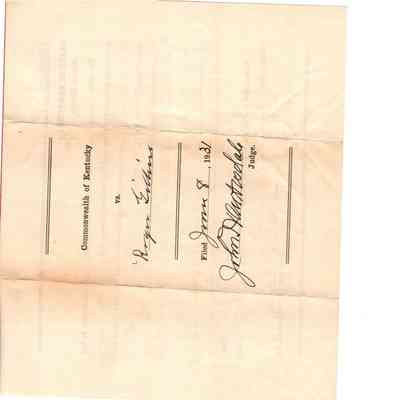 Commonwealth of Kentucky
vs.
Roger
Filed June 8, 1931
John
Judge.